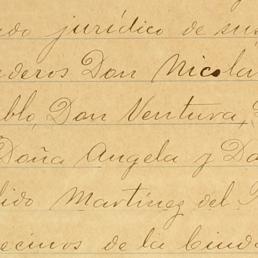 do jurídico de sus
ederos Don Nicola
blo, Don Ventura,
Doña Angela y Do
lido Martínez del
ecinos de la Ciuda